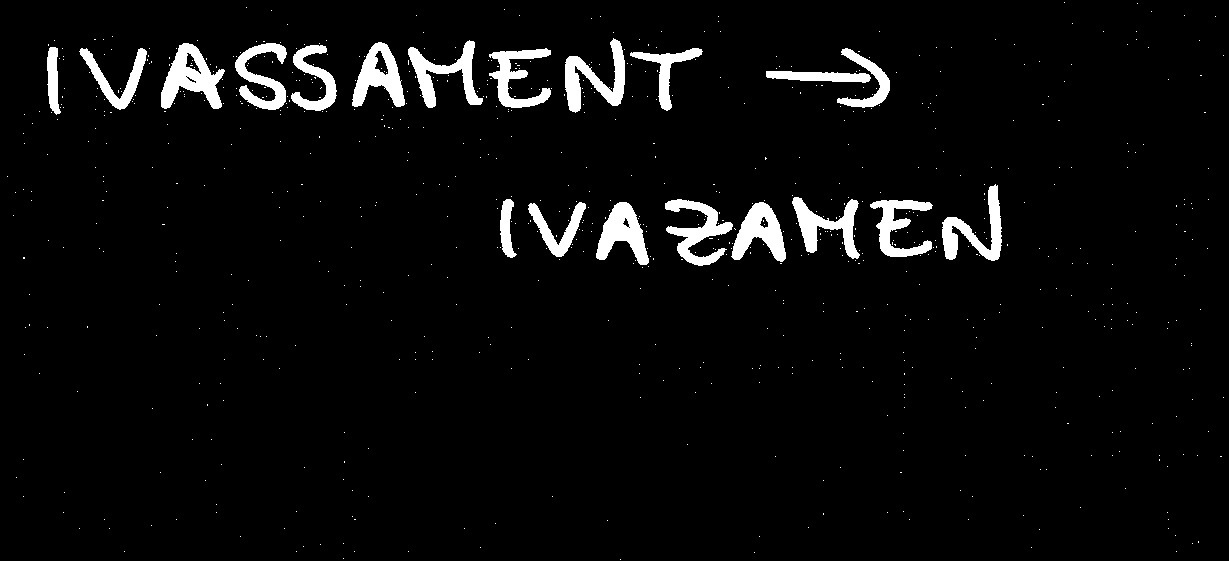 IVASSAMENT →
IVAZAMEN